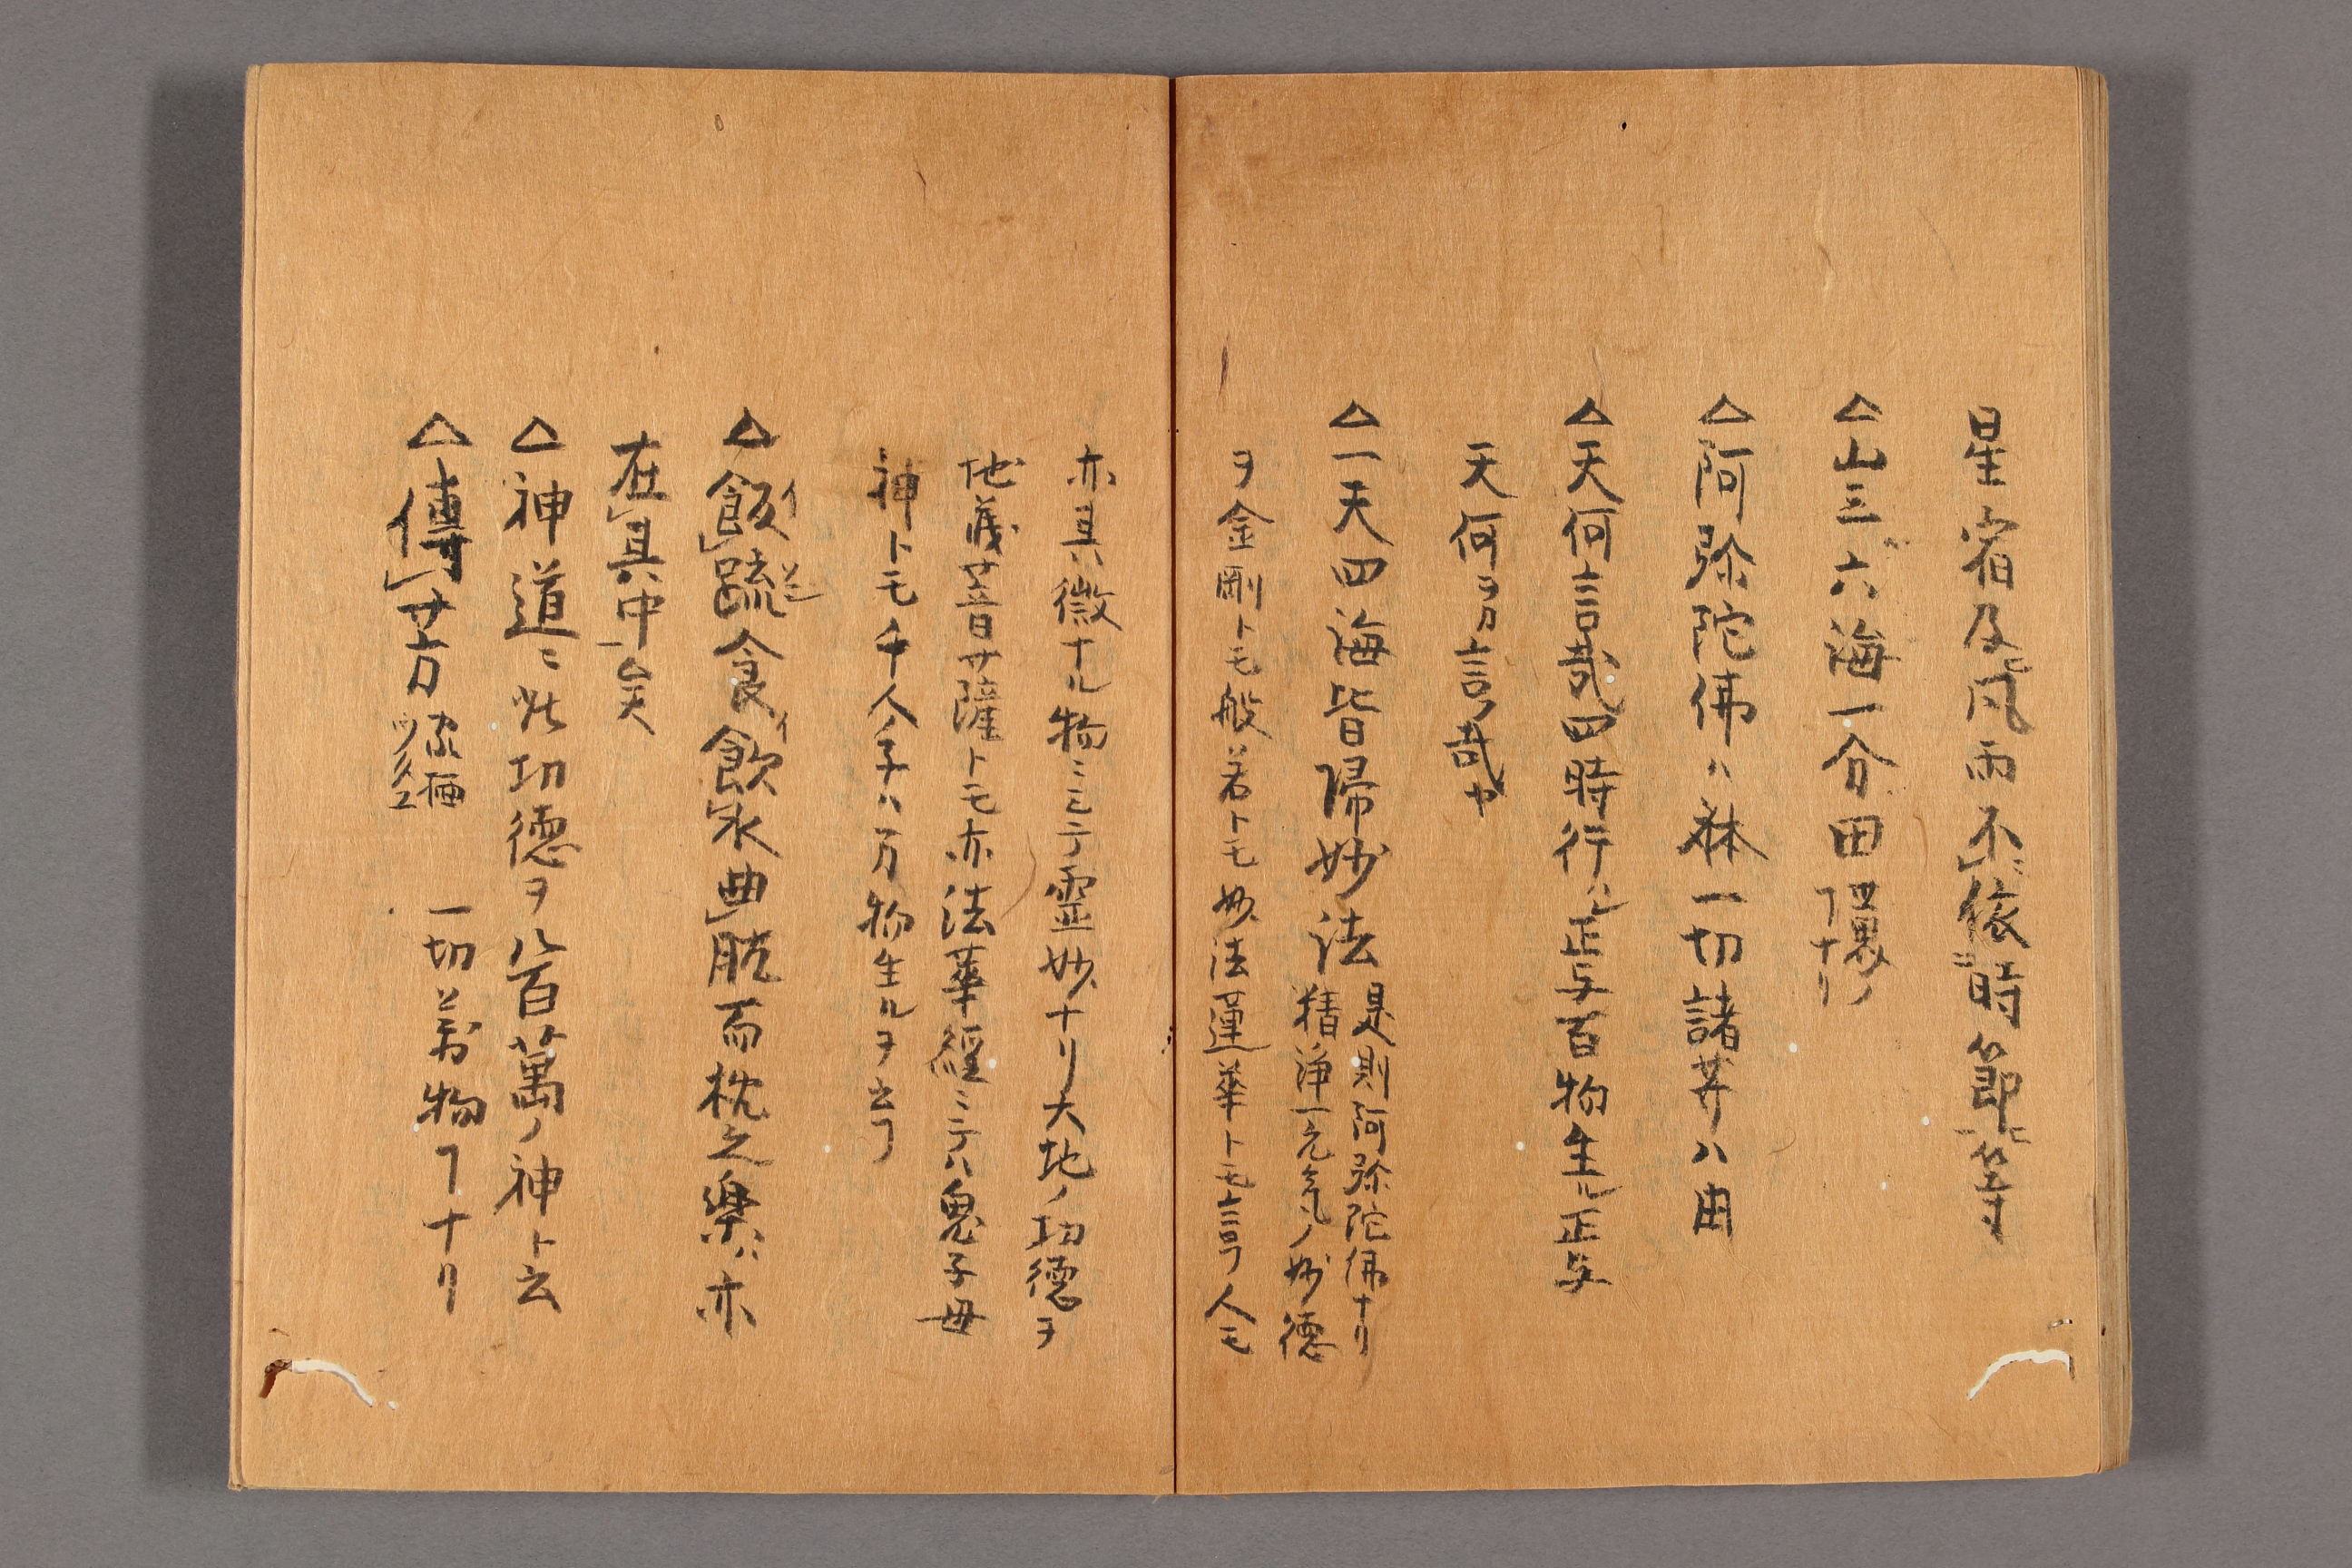 星宿及ヒ風雨不ハ依ニ時節ニ等
△山三六海一分田
△阿弥陀佛ハ秡一切諸菩薩ハ由
△天何言哉四時行ル正与百物生ル正与
天何ヲカ言ン哉ヤ
△一天四海皆帰妙法
是則阿弥陀佛ナリ
精浄一元気ノ妙徳
ヲ金剛トモ般若トモ妙法蓮華トモ言フ人モ
亦其徴ナル物ニシテ霊妙ナリ大地ノ功徳ヲ
地蔵菩薩トモ亦法華経ニテハ鬼子母
神トモ千人ノ子ハ万物生ルヲ云フ
△飯疏食飲水曲肱而枕之樂ハ亦
在其中矣
△神道ニ此功徳ヲ八百萬ノ神ト云
△傳廿方
一切ノ萬物ヿナリ